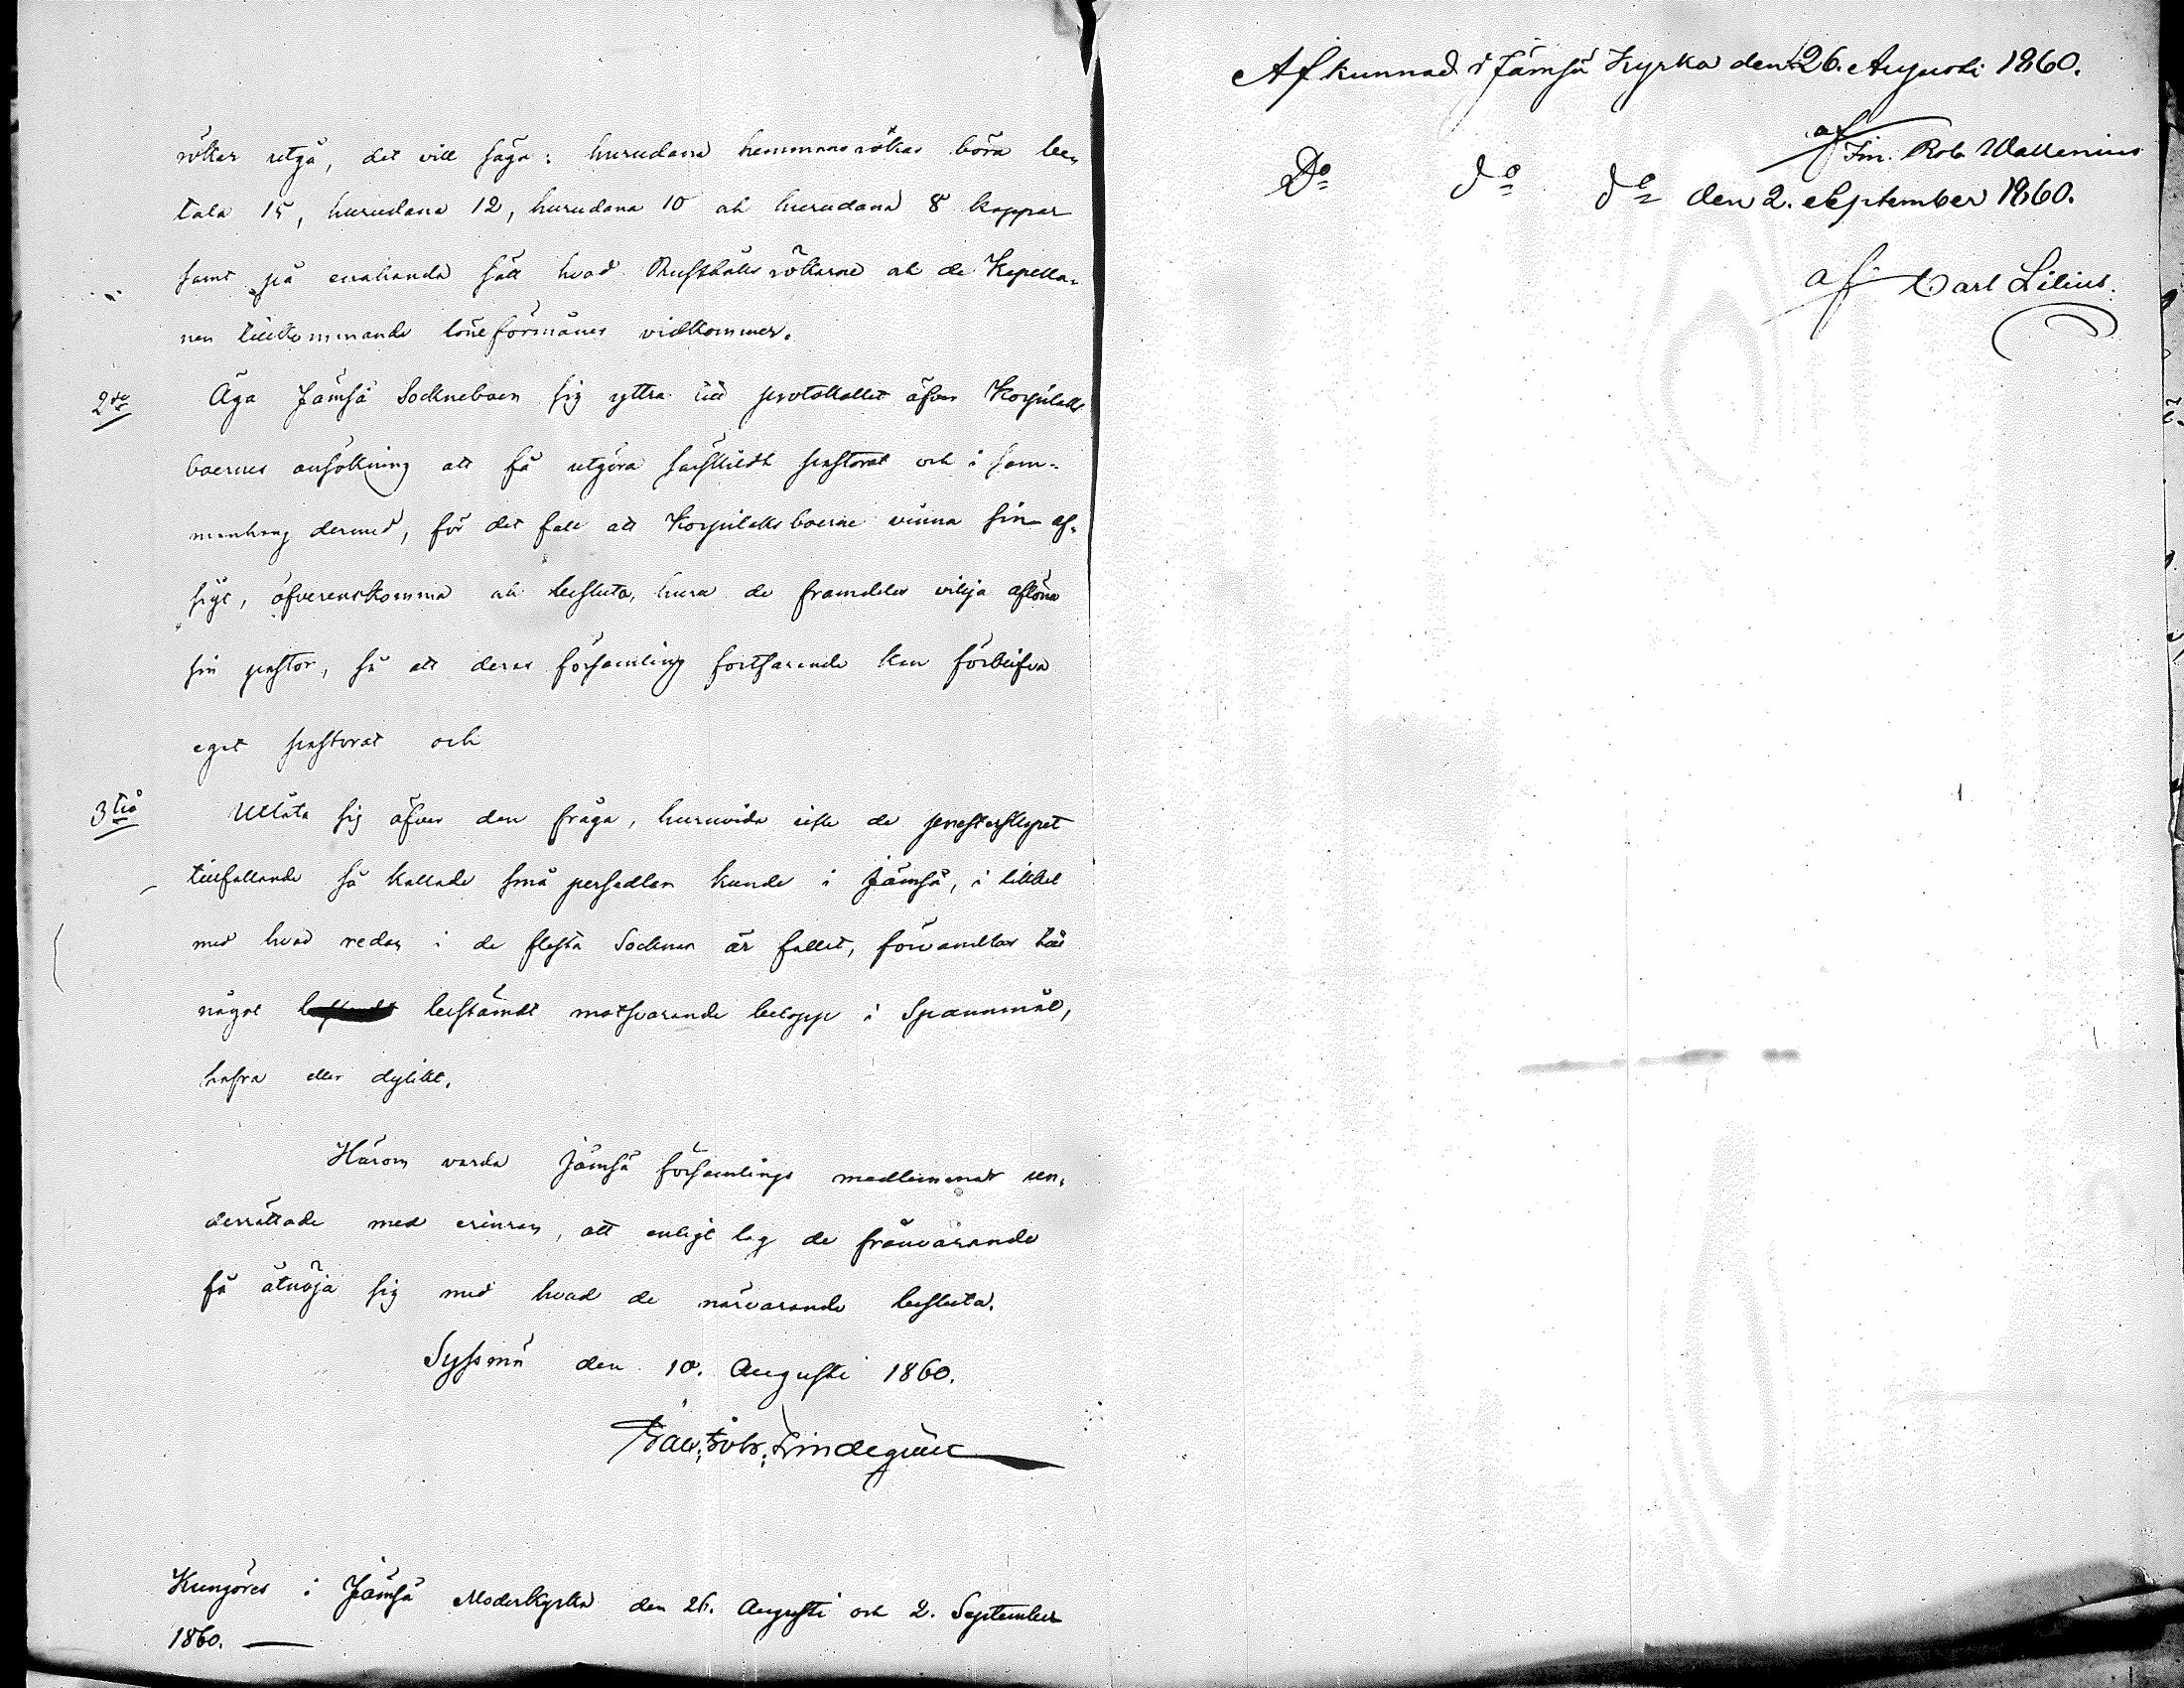 rökar utgå, det vill säga: hurudana hemmansrökar böra be-
tala 15, hurudana 12, hurudana 10 och hurudana 8 kappar
samt på enahanda sätt hvad Rusthålls rökarne och de Kapella-
nen tillkommande löneförmåner vidkommer.
2do Äga Jämsä Sockneboer sig yttra till protokollet öfver Korpilaks
boernes ansökning att få utgöra särskildt pastorat och i sam-
manhang dermed, för det fall att Korpilaks boerne vinna sin af-
sigt, öfverenskomma och besluta, huru de framdeles vilja aflöna
sin pastor, så att deras församling fortfarande kan förblifva
eget pastorat och
3tio Utlåta sig öfver den fråga, huruvida icke de presterskapet
tillfallande så kallade små persedlar kunde i Jämsä, i likhet
med hvad redan i de flesta Socknar är fallet, förvandlas till
något bestämdt motsvarande belopp i Spannmål,
hafra eller dylikt.
Härom varda Jämsä församlings medlemmar un-
derrättade med erinran, att enligt lag de frånvarande
få åtnöja sig med hvad de närvarande besluta.
Syssmä den 10. Augusti 1860.
Kungöres i Jämsä Moderkyrka den 26. Augusti och 2. September
1860.
Afkunnad i Jämsä Kyrka den 26. Augusti 1860.
af Rob Wallenius
Do do do den 2. September 1860.
af Carl Lilius.